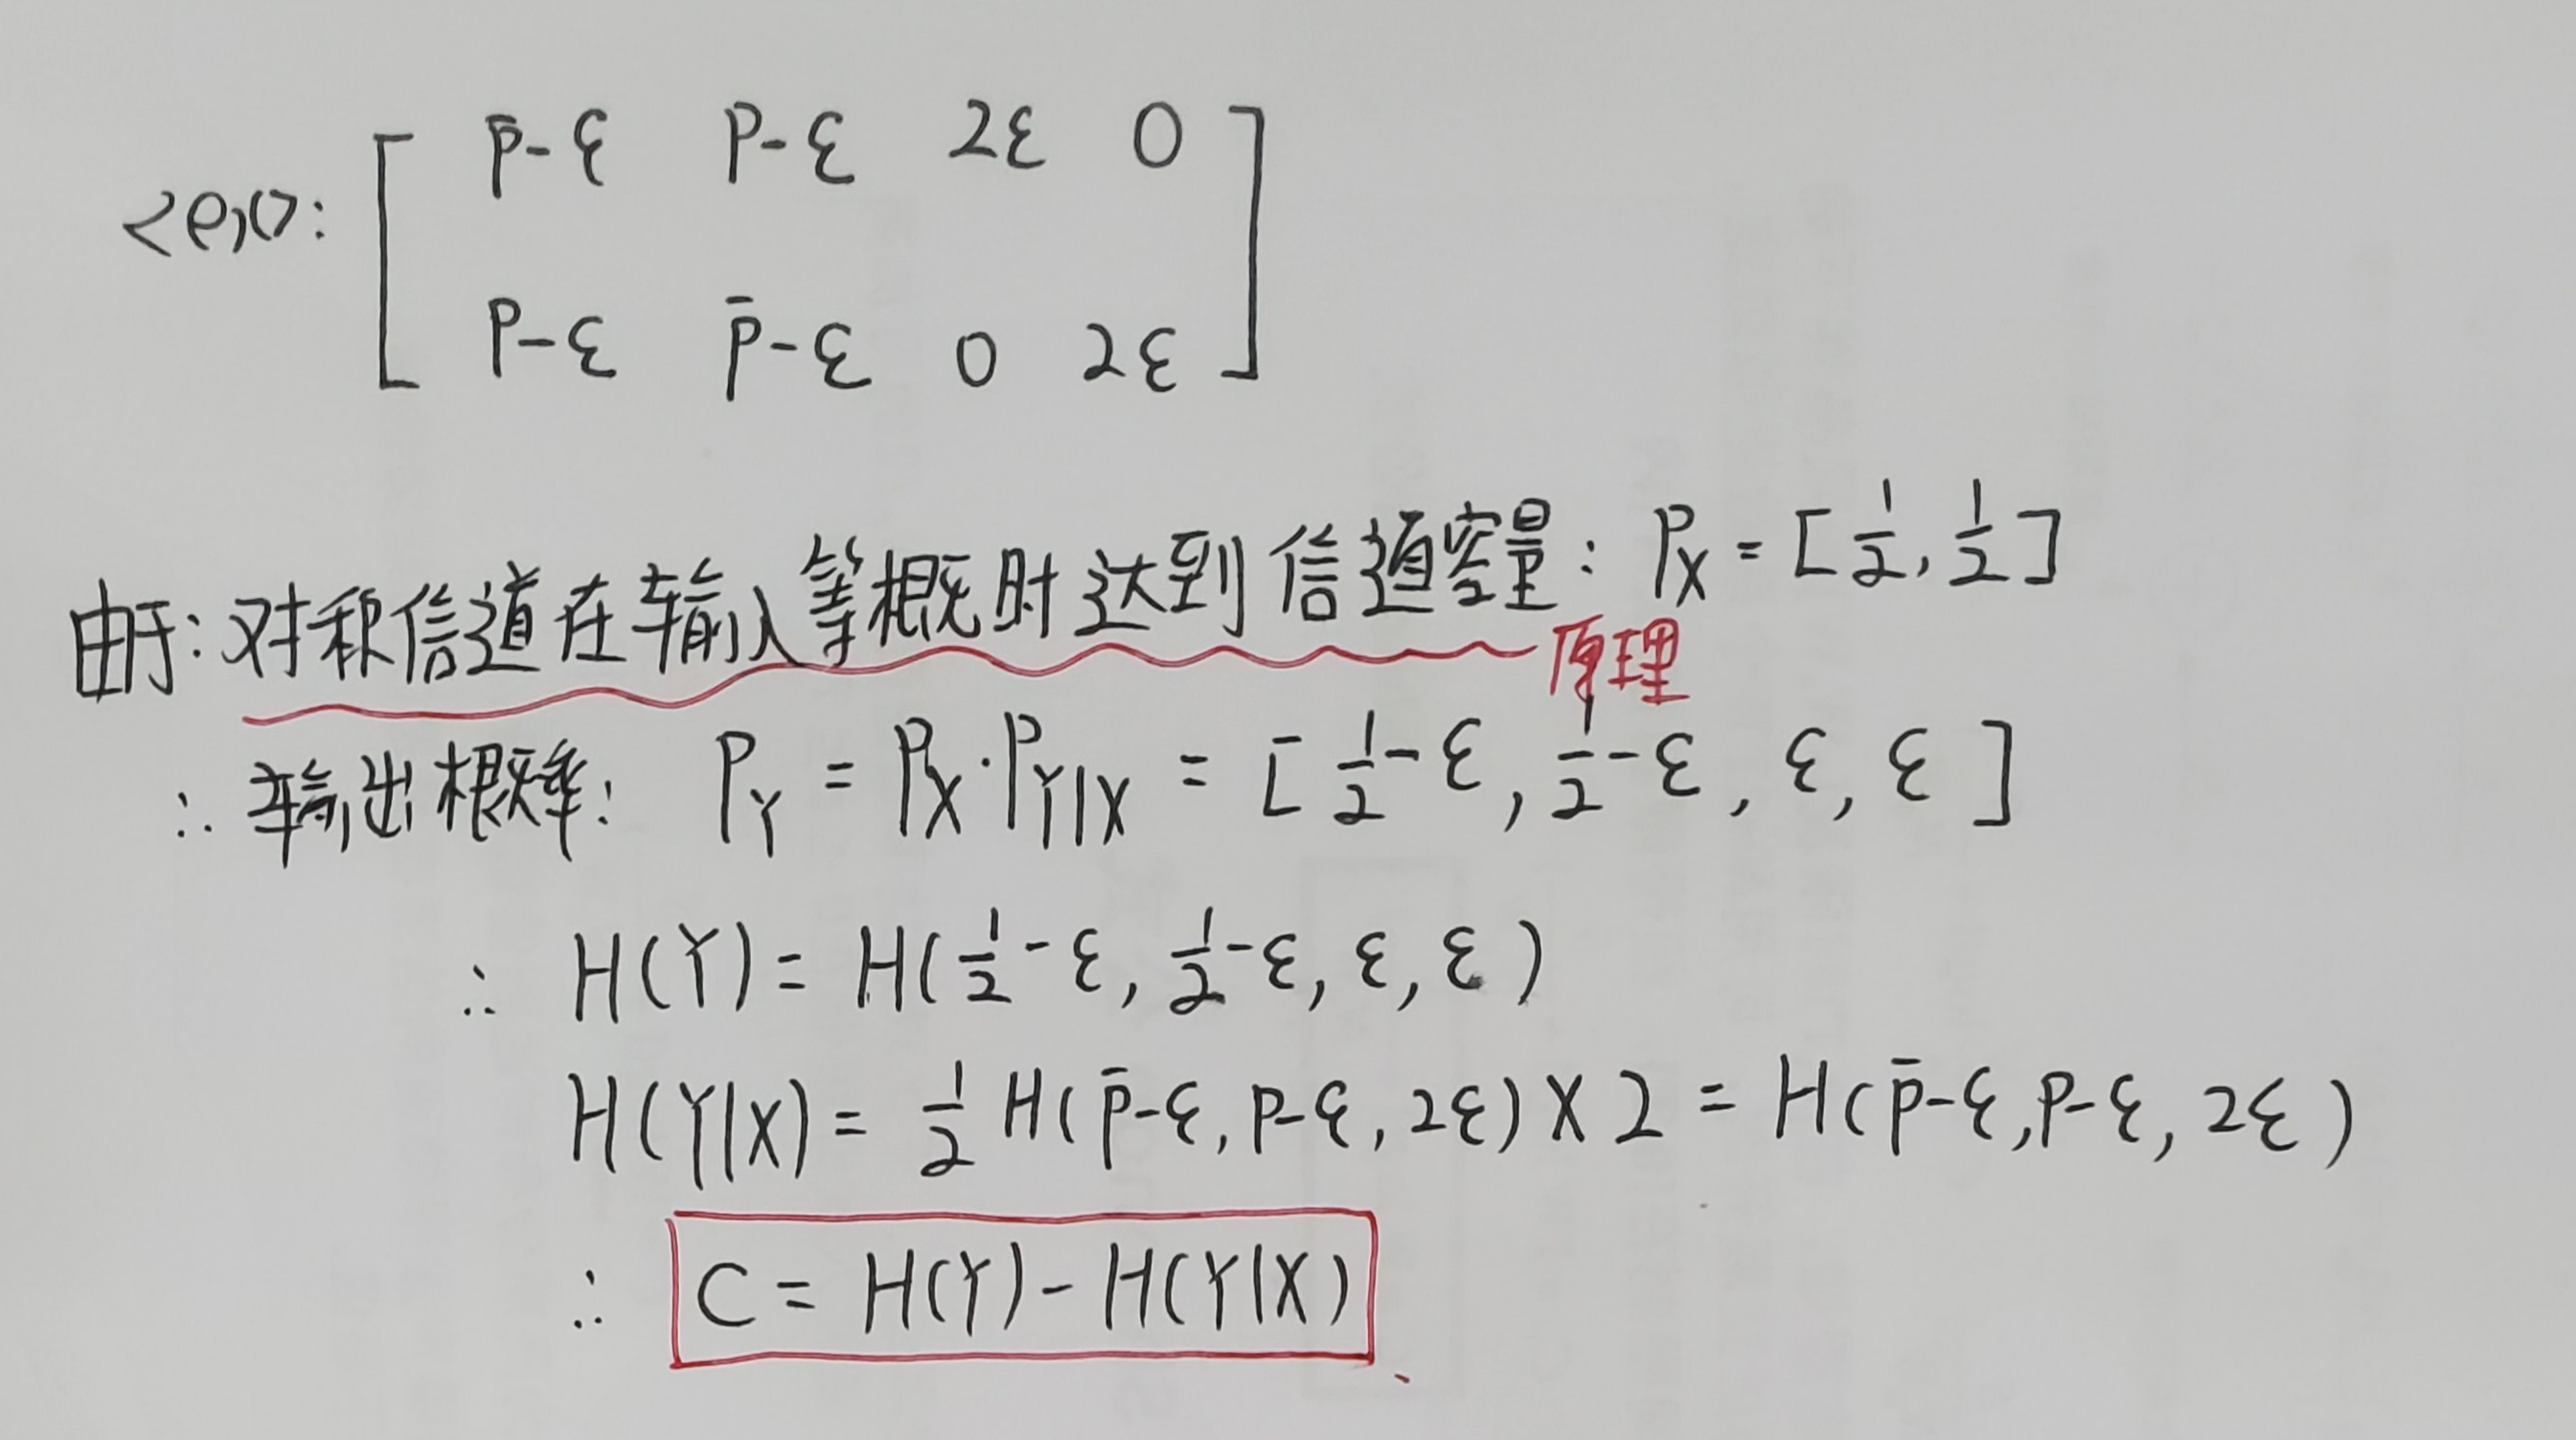 <exp>:
p̄-ε p-ε 2ε 0
p-ε p̄-ε 0 2ε
由于: 对称信道在输入等概时达到信道容量: P_X = [1/2, 1/2]
原理
∴ 输出概率: P_Y = P_X · P_{Y|X} = [1/2-ε, 1/2-ε, ε, ε]
∴ H(Y) = H(1/2-ε, 1/2-ε, ε, ε)
H(Y|X) = 1/2 H(p̄-ε, p-ε, 2ε) × 2 = H(p̄-ε, p-ε, 2ε)
∴ C = H(Y) - H(Y|X)